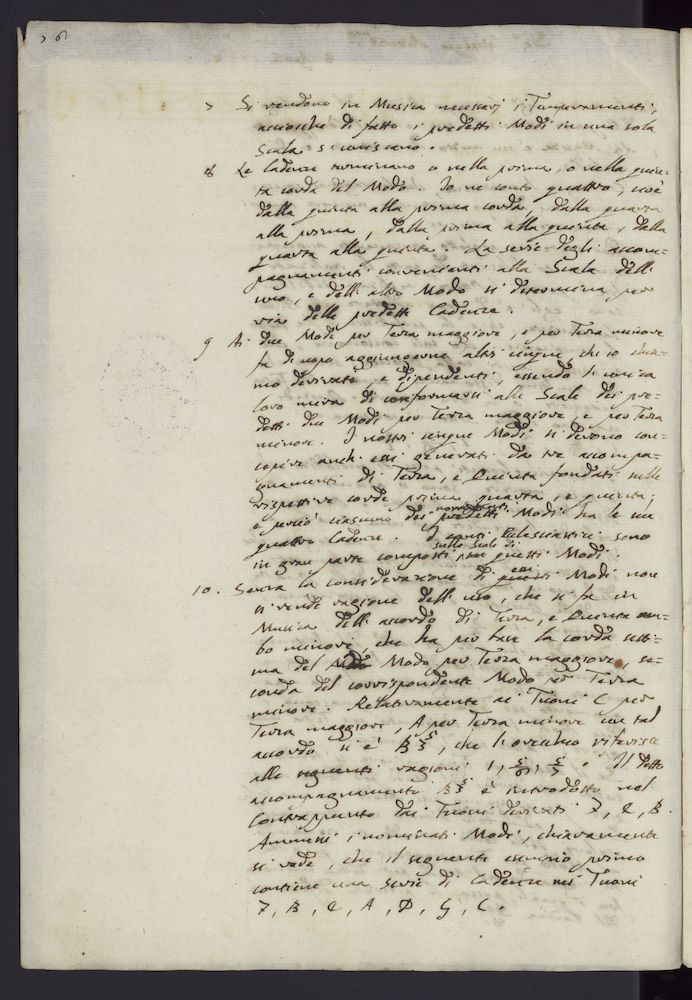 7 Si rendono in Musica necessarj i Temperamenti,
acciochè di fatto i predetti Modi in una sola
Scala si uniscano.
8 Le Cadenze terminano o nella prima, o nella quin=
ta corda del Modo. Io ne conto quattro, cioè
dalla quinta alla prima corda, dalla quarta
alla prima, dalla prima alla quinta, dalla
quarta alla quinta. La serie degli accom=
pagnamenti convenienti alla Scala dell'
uno, e dell'altro Modo si determina per
via delle predette Cadenze.
9 Ai due Modi per Terza maggiore, e per Terza minore
fa di uopo aggiungerne altri cinque, che io chia=
mo derivati, e dipendenti, essendo l'unica
loro mira di conformarsi alle Scale dei pre=
detti due Modi per Terza maggiore, e per Terza
minore. I nostri cinque Modi si devono con=
cepire anch' essi generati da tre accompa=
gnamenti di Terza, e Quinta fondati nelle
rispettive corde prima, quarta, e quinta;
e perciò ciascuno dei nominati Modi ha le sue
quattro Cadenze. I canti Eclesiastici sono
in gran parte composti sulle Scale di questi Modi.
10. Senza la considerazione di essi Modi non
si rende ragione dell' uso, che si fa in
Musica dell' accordo di Terza, e Quinta am=
bo minori, che ha per base la corda setti=
ma del Modo per Terza maggiore, se=
conda del corrispondente Modo per Terza
minore. Relativamente ai Tuoni C per
Terza maggiore, A per Terza minore un tal
accordo si è B 5 3, che l'orecchio riferisce
alle seguenti ragioni 1, 5/6, 5/7. Il detto
accompagnamento B 5 3 è introdotto nel
Contrappunto dai Tuoni derivati F, E, B.
Ammessi i nominati Modi, chiaramente
si vede, che il seguente esempio primo
contiene una serie di Cadenze nei Tuoni
F, B, E, A, D, G, C.